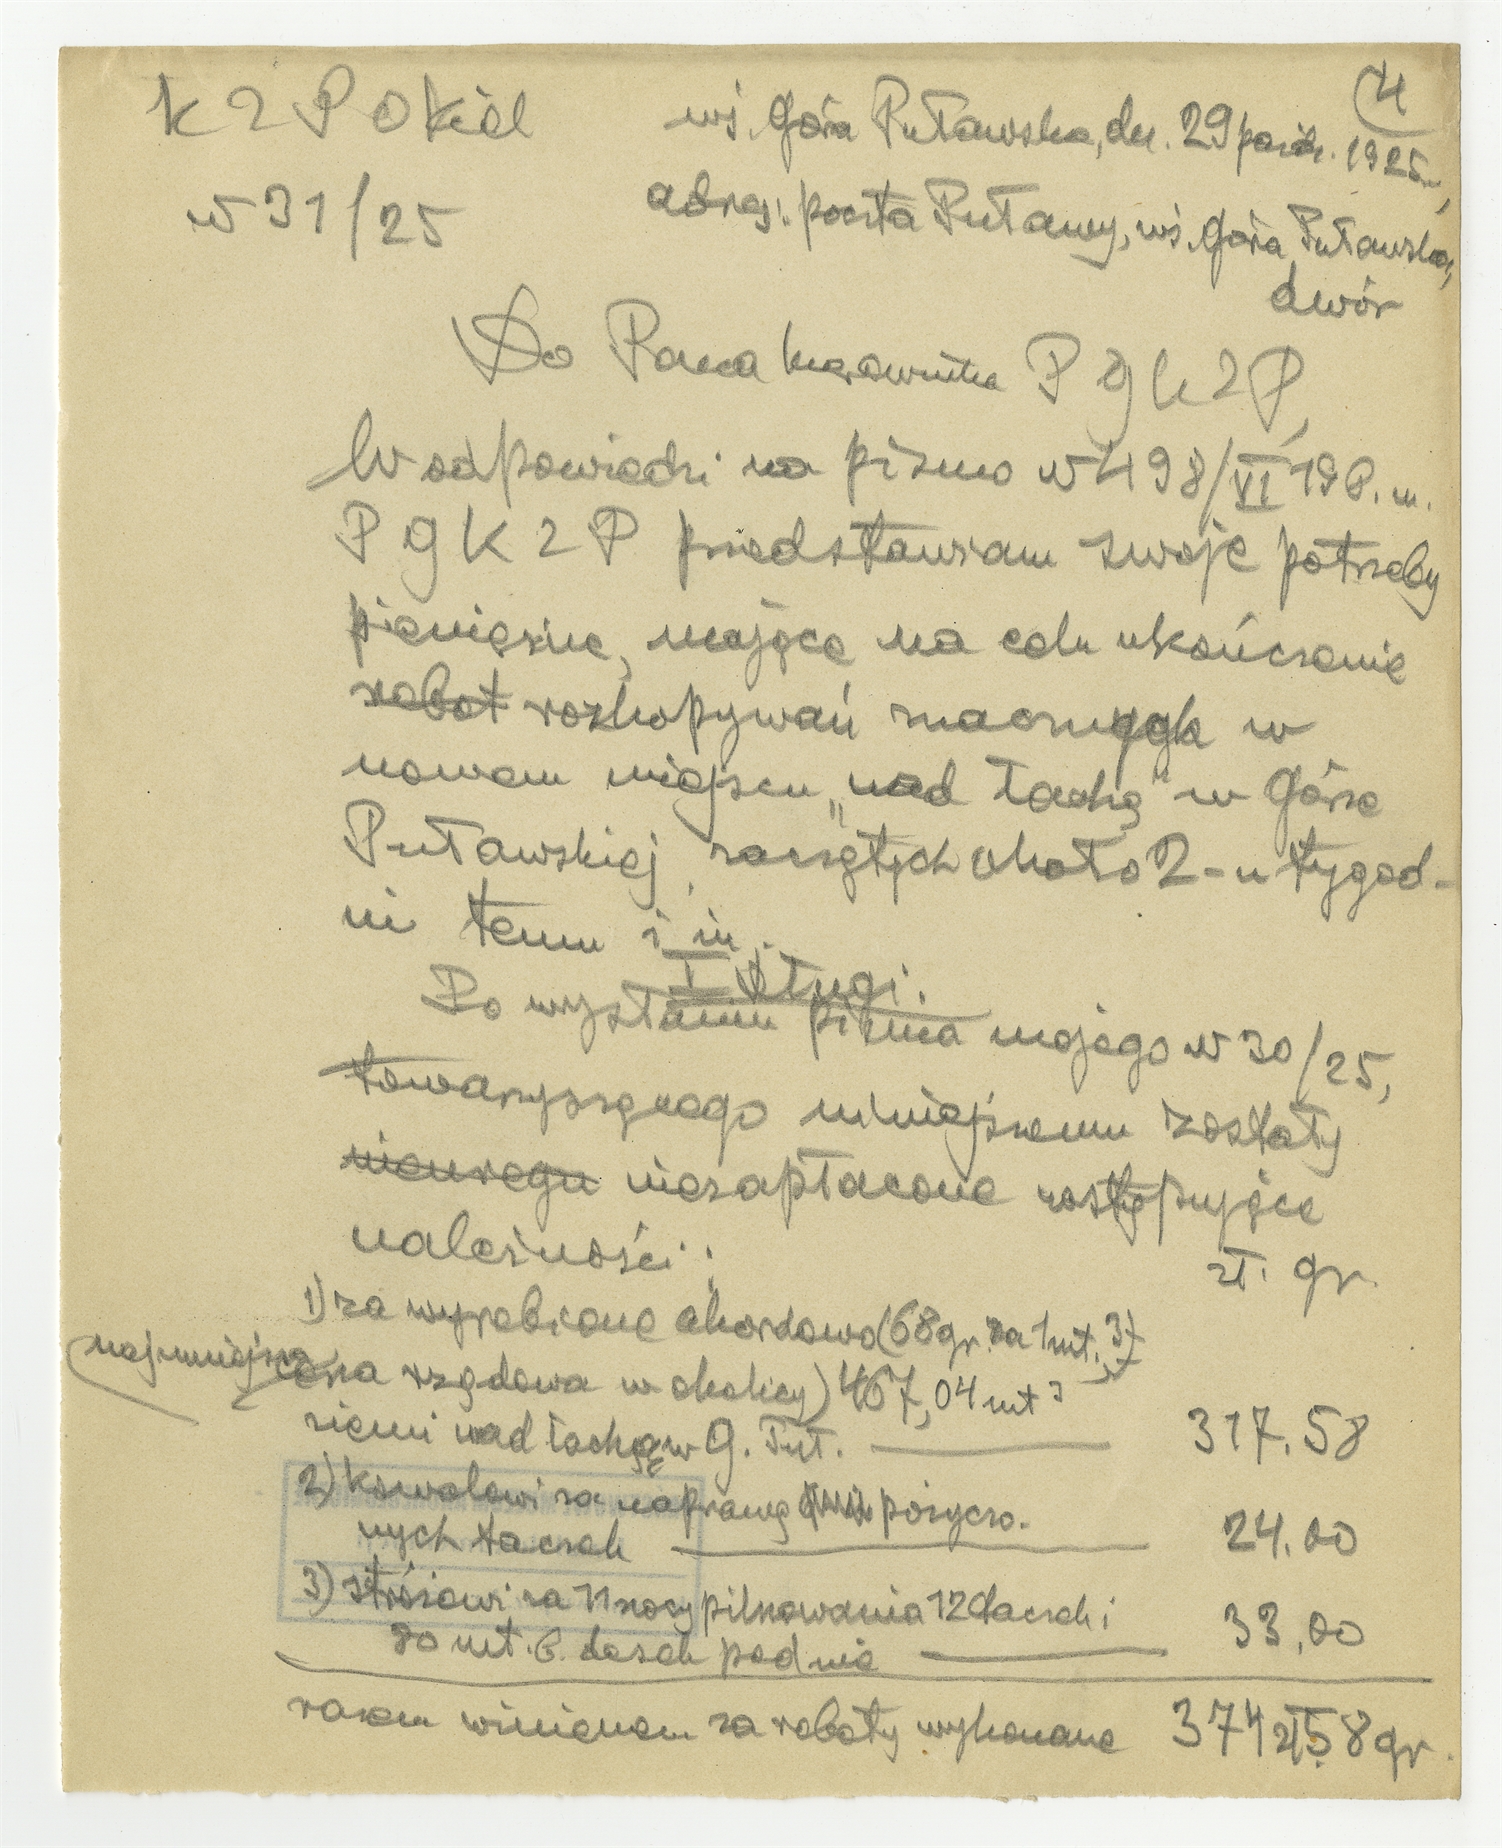 4
K Z P O Kiel wś. Góra Puławska, dn. 29 paźdz. 1925 r.,
N 31/25 adres: poczta Puławy, wś. Góra Puławska,
dwór
Do Pana kierownika P G K Z P,
W odpowiedzi na pismo N 498/VI 19 b. m.
P G K Z P przedstawiam swoje potrzeby
pieniężne, mające na celu ukończenie
robot rozkopywań znacznych w
nowem miejscu „nad łachą" w Górze
Puławskiej, zaczętych około 2-u tygod-
ni temu i in.
I Długi.
Po wysłaniu pisma mojego N 30/25,
towarzyszącego niniejszemu zostały
niezapłacone następujące
należności: zł. gr.
1) za wyrobione akordowo (68 gr. za 1 mt.³)
najmniejsza cena rządowa w okolicy) 467,04 mt³
ziemi nad łachą w G. Puł. 317.58
2) kowalowi za naprawę pożyczo-
nych taczek 24.00
3) stróżowi za 11 nocy pilnowania 12 taczek i
80 mt. b. desek podnie 33,00
razem winienem za roboty wykonane 374 zł 58 gr.